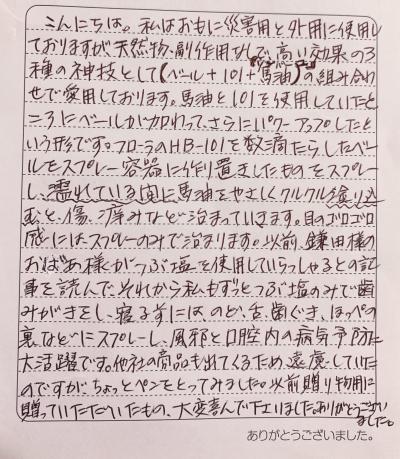 こんにちは。私はおもに災害用と外用に使用し
ておりますが天然物、副作用なしで、高い効果の3
種の神技として(ベール+101+馬油)の組み合わ
せで愛用しております。馬油と101を使用していたと
ころにベールが加わって、さらにパワーアップしたと
いう形です。フローラのHB-101を数滴たらしたベー
ルをスプレー容器に作り置きしたものをスプレー
し、濡れている間に馬油をやさしくクルクル塗り込
むと、傷、痒みなど治まっていきます。目のゴロゴロ
感にはスプレーのみで治まります。以前、鎌田様の
おばあ様がつぶ塩を使用していらっしゃるとの記
事を読んで、それから私もずっとつぶ塩のみで歯
みがきをし、寝る前には、のど、舌、歯ぐき、ほっぺの
裏などにスプレーし、風邪と口腔内の病気予防に
大活躍です。他社の商品も出てくるため、遠慮していた
のですがちょっとペンをとってみました。以前贈り物用に
贈っていただいたもの、大変喜んで下さいました。ありがとうござい
ました。
ありがとうございました。